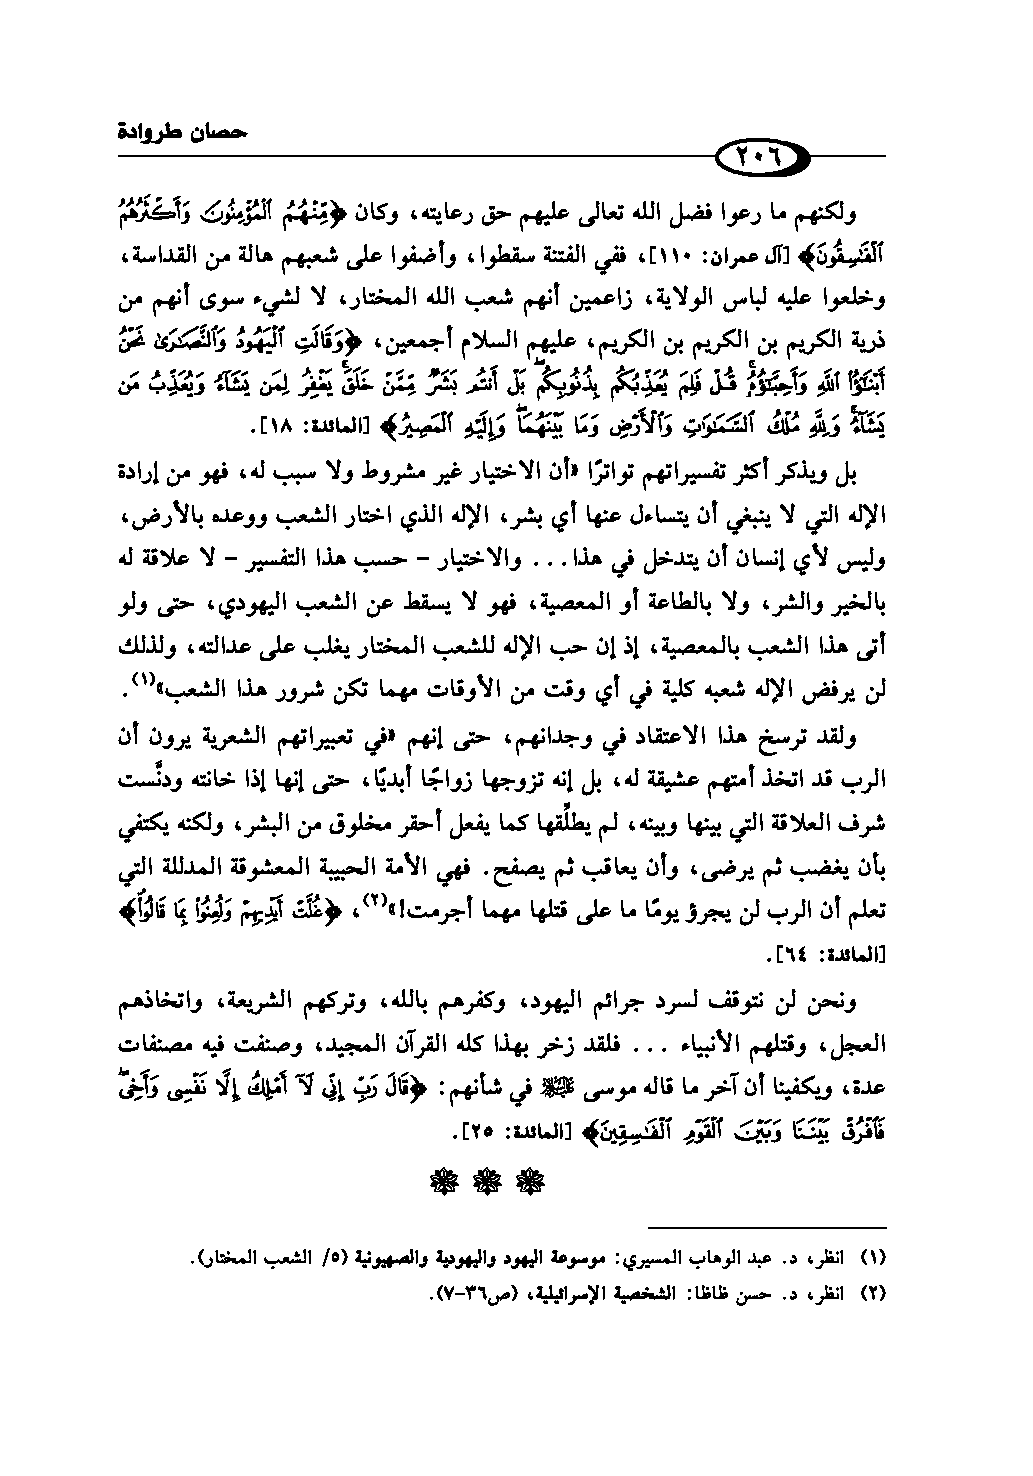 حصان طروادة
٢٠٦
ولكنهم ما رعوا فضل الله تعالى عليهم حق رعايته، وكان ﴿مِّنْهُمُ الْمُؤْمِنُونَ وَأَكْثَرُهُمُ
الْفَاسِقُونَ﴾ [آل عمران: ١١٠]، ففي الفتنة سقطوا، وأضفوا على شعبهم هالة من القداسة،
وخلعوا عليه لباس الولاية، زاعمين أنهم شعب الله المختار، لا لشيء سوى أنهم من
ذرية الكريم بن الكريم بن الكريم، عليهم السلام أجمعين، ﴿وَقَالَتِ الْيَهُودُ وَالنَّصَارَىٰ نَحْنُ
أَبْنَاؤُا اللَّهِ وَأَحِبَّاؤُهُ ۚ قُلْ فَلِمَ يُعَذِّبُكُم بِذُنُوبِكُم ۖ بَلْ أَنتُم بَشَرٌ مِّمَّنْ خَلَقَ ۚ يَغْفِرُ لِمَن يَشَاءُ وَيُعَذِّبُ مَن
يَشَاءُ ۚ وَلِلَّهِ مُلْكُ السَّمَاوَاتِ وَالْأَرْضِ وَمَا بَيْنَهُمَا ۖ وَإِلَيْهِ الْمَصِيرُ﴾ [المائدة: ١٨].
بل ويذكر أكثر تفسيراتهم تواترًا «أن الاختيار غير مشروط ولا سبب له، فهو من إرادة
الإله التي لا ينبغي أن يتساءل عنها أي بشر، الإله الذي اختار الشعب ووعده بالأرض،
وليس لأي إنسان أن يتدخل في هذا... والاختيار - حسب هذا التفسير - لا علاقة له
بالخير والشر، ولا بالطاعة أو المعصية، فهو لا يسقط عن الشعب اليهودي، حتى ولو
أتى هذا الشعب بالمعصية، إذ إن حب الإله للشعب المختار يغلب على عدالته، ولذلك
لن يرفض الإله شعبه كلية في أي وقت من الأوقات مهما تكن شرور هذا الشعب»(١).
ولقد ترسخ هذا الاعتقاد في وجدانهم، حتى إنهم «في تعبيراتهم الشعرية يرون أن
الرب قد اتخذ أمتهم عشيقة له، بل إنه تزوجها زواجًا أبديًا، حتى إنها إذا خانته ودنَّست
شرف العلاقة التي بينها وبينه، لم يطلِّقها كما يفعل أحقر مخلوق من البشر، ولكنه يكتفي
بأن يغضب ثم يرضى، وأن يعاقب ثم يصفح. فهي الأمة الحبيبة المعشوقة المدللة التي
تعلم أن الرب لن يجرؤ يومًا ما على قتلها مهما أجرمت!»(٢)، ﴿غُلَّتْ أَيْدِيهِمْ وَلُعِنُوا بِمَا قَالُوا﴾
[المائدة: ٦٤].
ونحن لن نتوقف لسرد جرائم اليهود، وكفرهم بالله، وتركهم الشريعة، واتخاذهم
العجل، وقتلهم الأنبياء ... فلقد زخر بهذا كله القرآن المجيد، وصنفت فيه مصنفات
عدة، ويكفينا أن آخر ما قاله موسى ﷺ في شأنهم: ﴿قَالَ رَبِّ إِنِّي لَا أَمْلِكُ إِلَّا نَفْسِي وَأَخِي ۖ
فَافْرُقْ بَيْنَنَا وَبَيْنَ الْقَوْمِ الْفَاسِقِينَ﴾ [المائدة: ٢٥].
(١) انظر، د. عبد الوهاب المسيري: موسوعة اليهود واليهودية والصهيونية (٥/ الشعب المختار).
(٢) انظر، د. حسن ظاظا: الشخصية الإسرائيلية، (ص٣٦-٧).